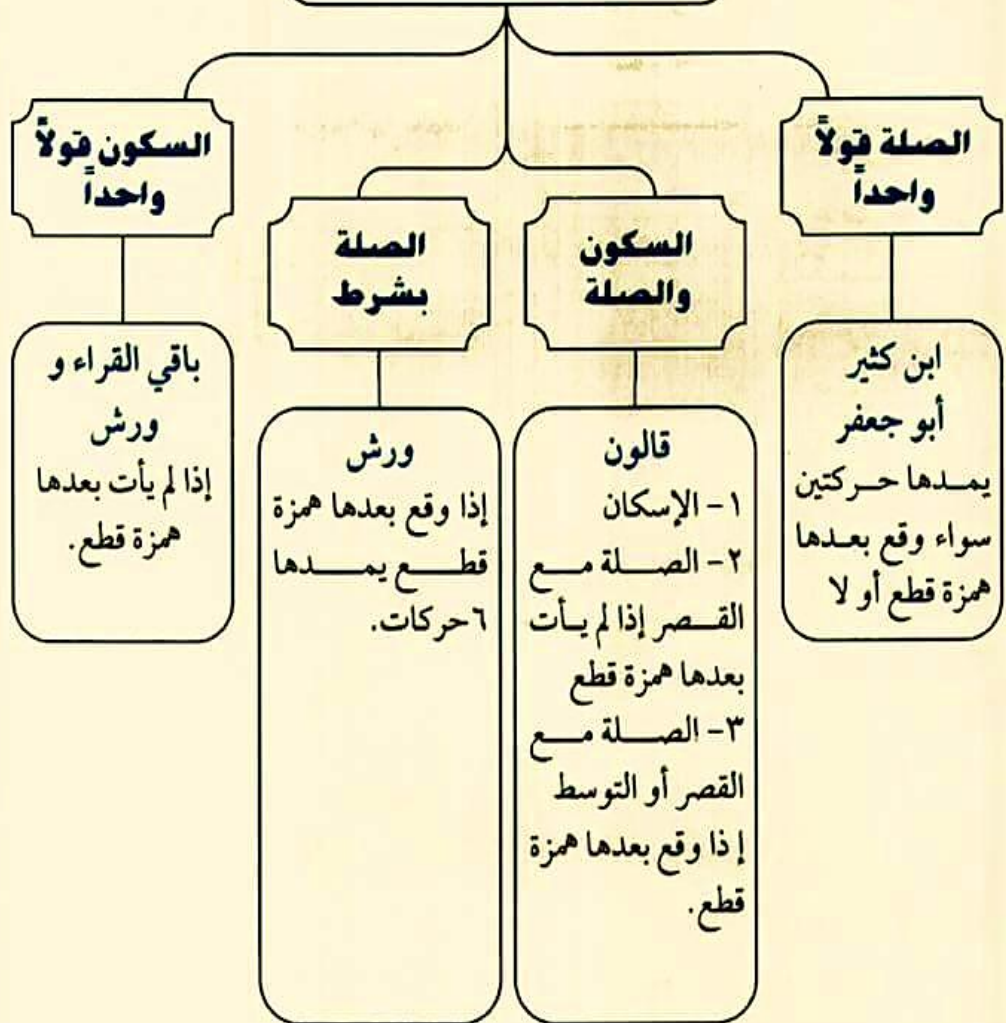 الصلة قولاً
واحداً
ابن كثير
أبو جعفر
يمدها حركتين
سواء وقع بعدها
همزة قطع أو لا
السكون
والصلة
قالون
١- الإسكان
٢- الصلة مع
القصر إذا لم يأت
بعدها همزة قطع
٣- الصلة مع
القصر أو التوسط
إذا وقع بعدها همزة
قطع.
الصلة
بشرط
ورش
إذا وقع بعدها همزة
قطع يمدها
٦حركات.
السكون قولاً
واحداً
باقي القراء و
ورش
إذا لم يأت بعدها
همزة قطع.